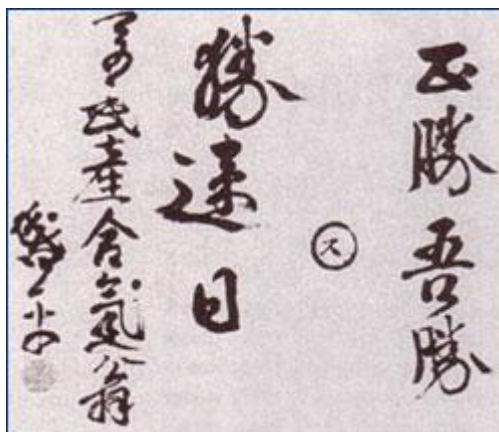 正勝吾勝
ス
勝速日
武産合氣翁